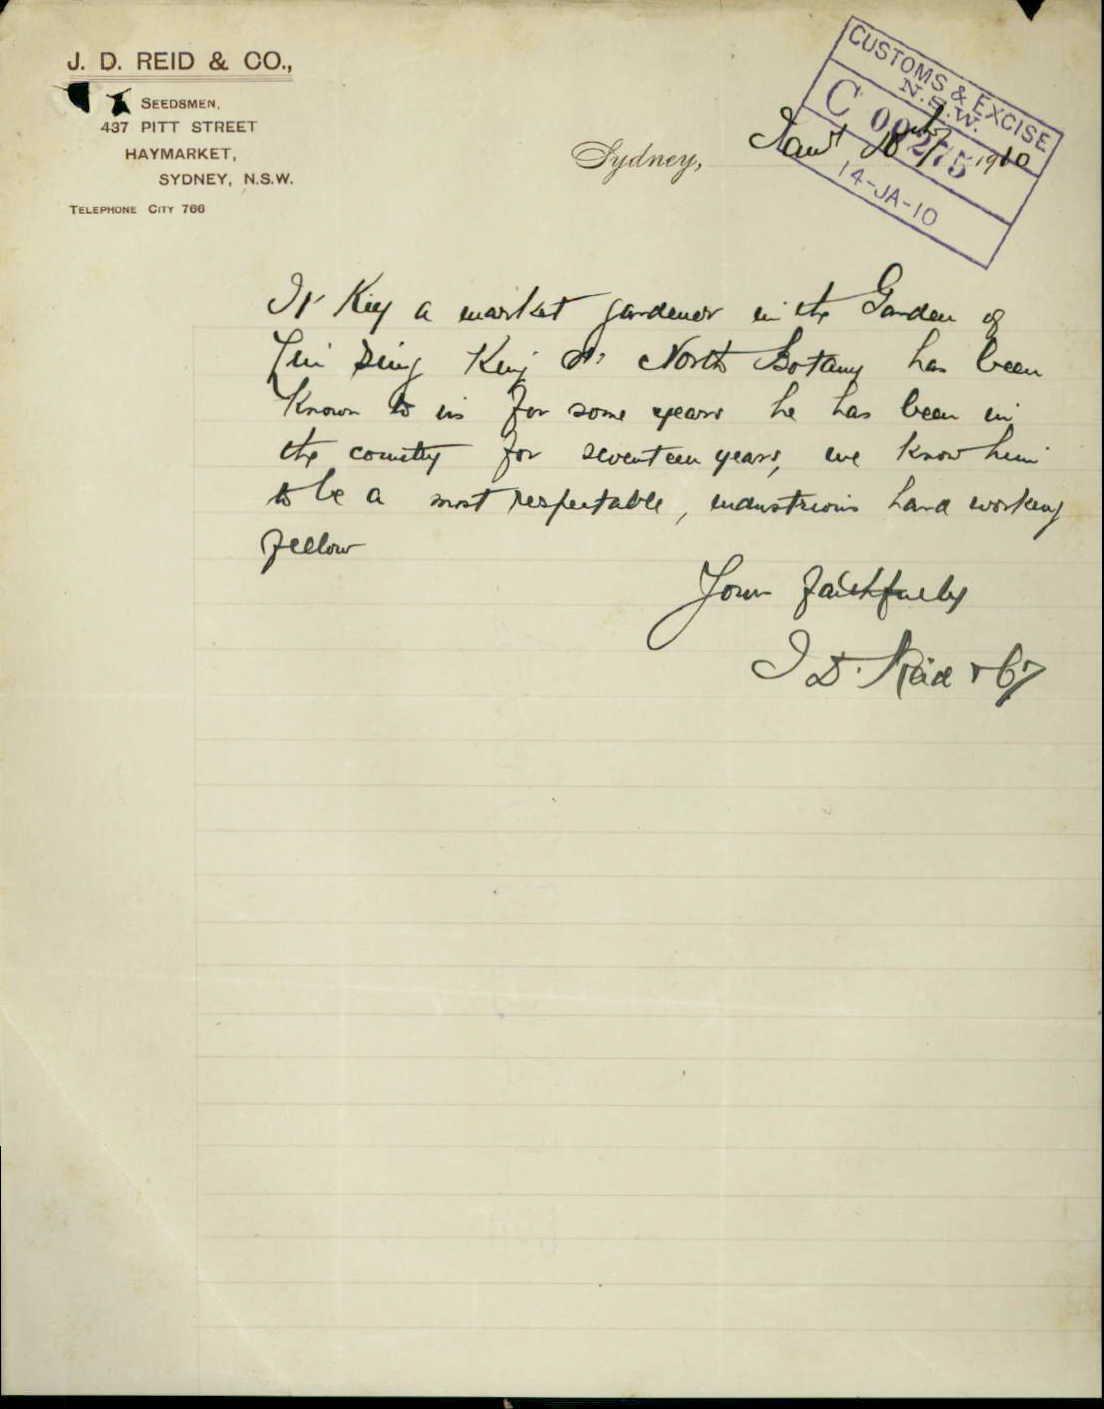 J. D. REID & CO.,
SEEDSMEN,
437 PITT STREET
HAYMARKET,
SYDNEY, N.S.W.
TELEPHONE CITY 766
CUSTOMS & EXCISE
N.S.W.
C 00275
14-JA-10
Sydney, 1910
Key a market gardener in the Garden of
Sing North Botany has been
Known to us for some years he has been in
the country for seventeen years, we know him
to be a most respectable, industrious hard working
fellow
Yours faithfully
J D. Reid & Co